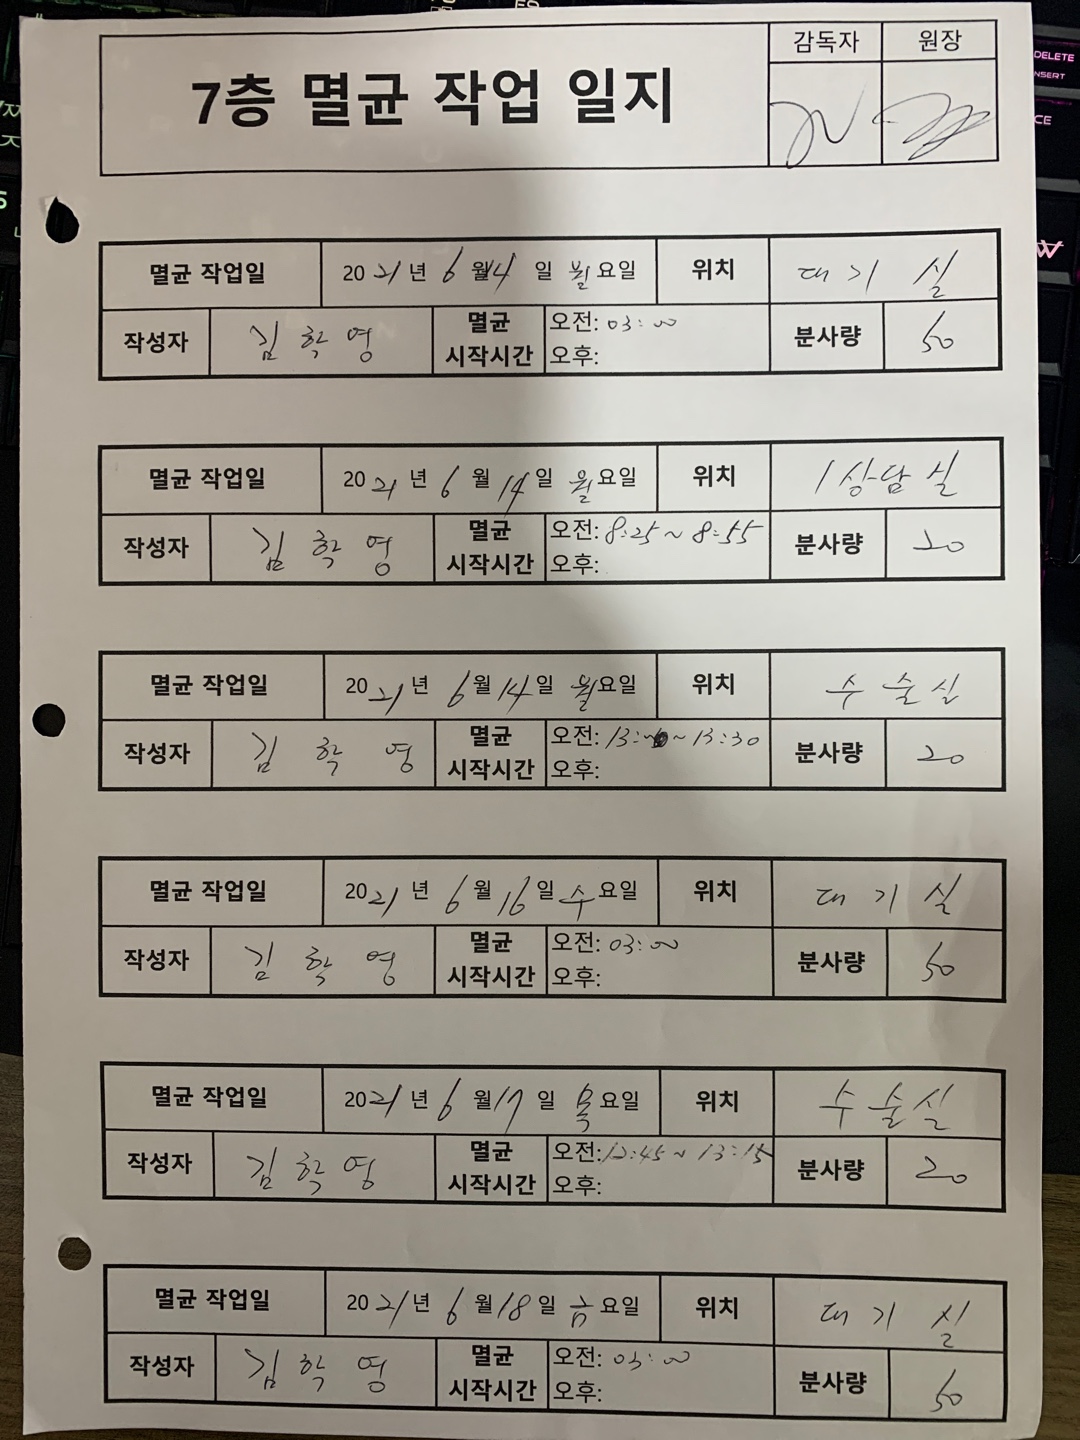 감독자 원장
7층 멸균 작업 일지
멸균 작업일 2021년 6월 14일 월요일 위치 대기실
작성자 김학영 멸균 시작시간 오전: 03:00 분사량 50
오후:
멸균 작업일 2021년 6월 14일 월요일 위치 1상담실
작성자 김학영 멸균 시작시간 오전: 8:25~8:55 분사량 20
오후:
멸균 작업일 2021년 6월 14일 월요일 위치 수술실
작성자 김학영 멸균 시작시간 오전: 13:00~13:30 분사량 20
오후:
멸균 작업일 2021년 6월 16일 수요일 위치 대기실
작성자 김학영 멸균 시작시간 오전: 03:00 분사량 50
오후:
멸균 작업일 2021년 6월 17일 목요일 위치 수술실
작성자 김학영 멸균 시작시간 오전: 12:45~13:15 분사량 20
오후:
멸균 작업일 2021년 6월 18일 금요일 위치 대기실
작성자 김학영 멸균 시작시간 오전: 03:00 분사량 50
오후:
DELETE
INSERT